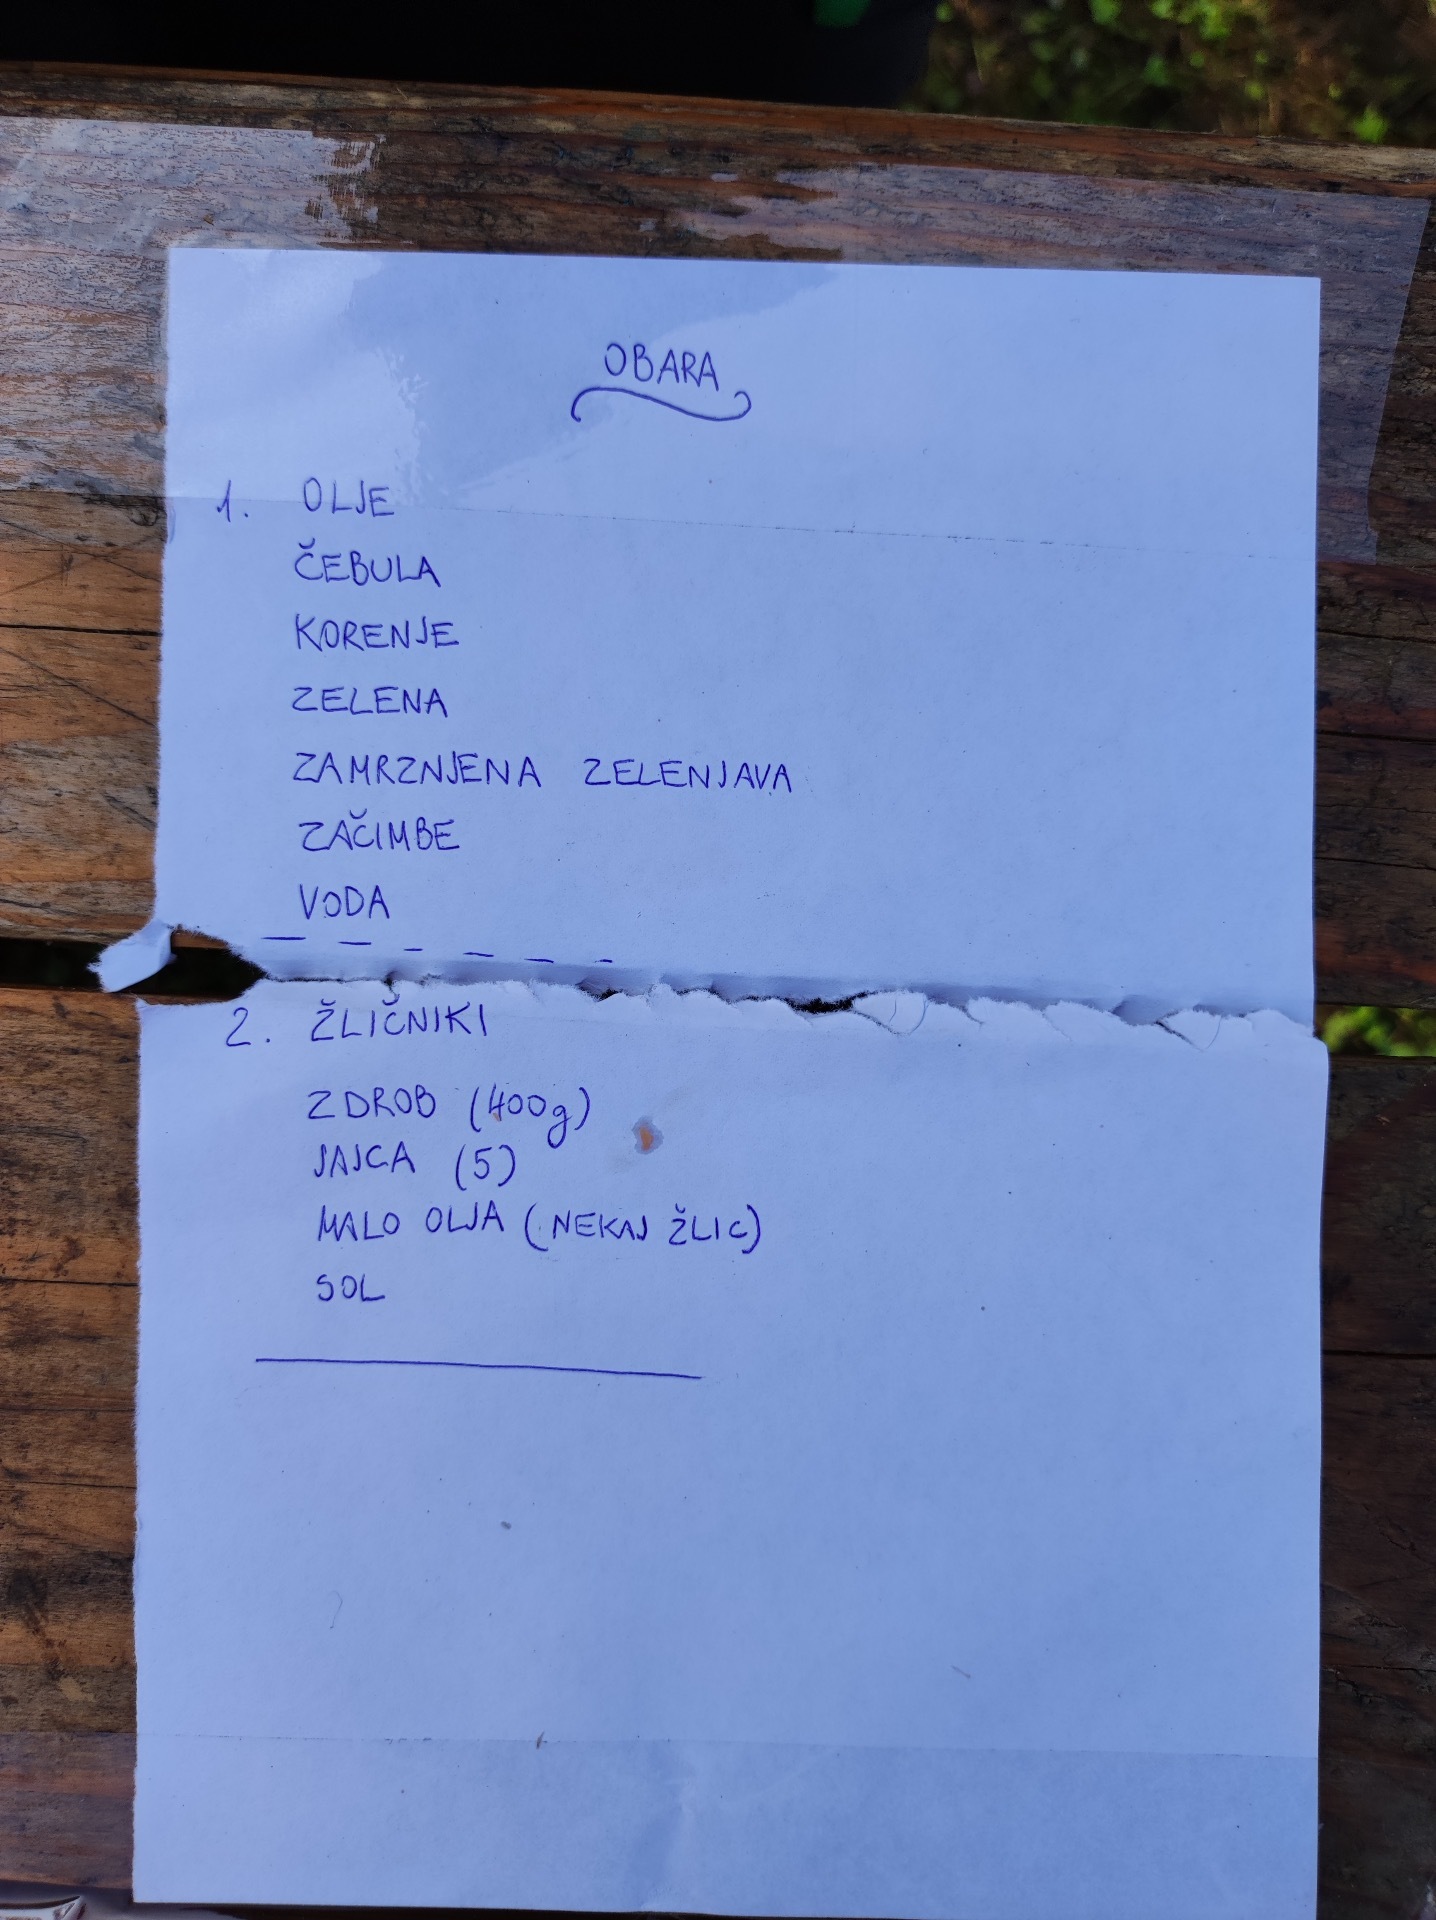 OBARA
1. OLJE
ČEBULA
KORENJE
ZELENA
ZAMRZNJENA ZELENJAVA
ZAČIMBE
VODA
2. ŽLIČNIKI
ZDROB (400g)
JAJCA (5)
MALO OLJA (NEKAJ ŽLIC)
SOL